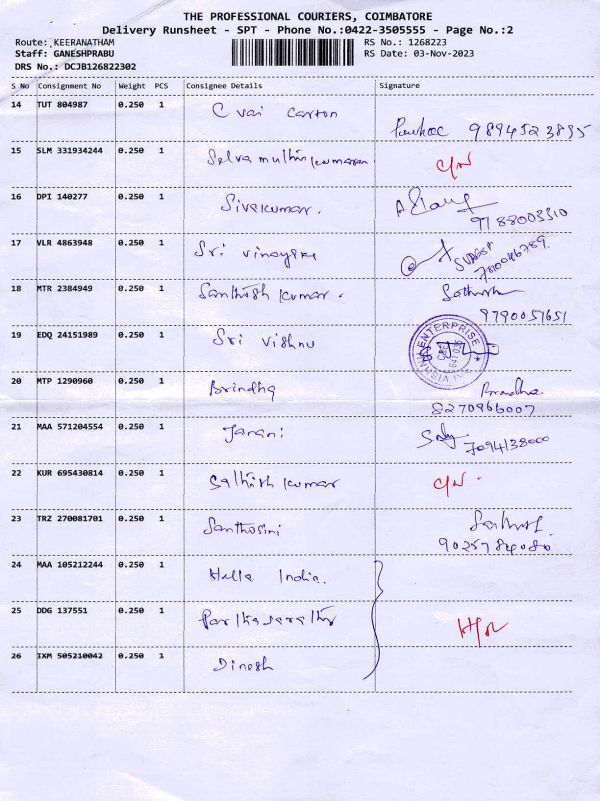 THE PROFESSIONAL COURIERS, COIMBATORE
Delivery Runsheet - SPT - Phone No.:0422-3505555 - Page No.:2
Route: KEERANATHAM RS No.: 1268223
Staff: GANESHPRABU RS Date: 03-Nov-2023
DRS No.: DCJB126822302
S No Consignment No Weight PCS Consignee Details Signature
14 TUT 804987 0.250 1 C vai carton
9894523895
15 SLM 331934244 0.250 1 Selvamuthukumaran C/N
16 DPI 140277 0.250 1 Sivakumar.
9788003310
17 VLR 4863948 0.250 1 Sri Vinayaka
18 MTR 2384949 0.250 1 Santhosh kumar. Sathish
9790051651
19 EDQ 24151989 0.250 1 Sri Vishnu ENTERPRISE
20 MTP 1290960 0.250 1 Brindha Brindha
8270966007
21 MAA 571204554 0.250 1 Janani 7094138000
22 KUR 695430814 0.250 1 Sathish kumar C/N .
23 TRZ 270081701 0.250 1 Santhosini
9025784080
24 MAA 105212244 0.250 1 Hella India.
25 DDG 137551 0.250 1 Parthasarathy
26 IXM 505210042 0.250 1 Dinesh